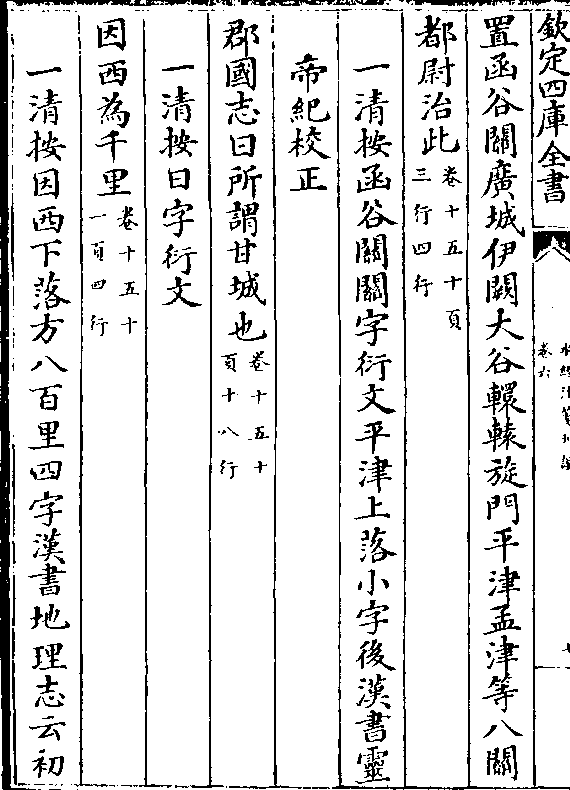 欽定四庫全書
卷六
置函谷關廣城伊闕大谷轘轅旋門平津孟津等八關
都尉治此卷十五十頁三行四行
一清按函谷關關字衍文平津上落小字後漢書靈
帝紀校正
郡國志曰所謂甘城也卷十五十頁十八行
一清按曰字衍文
因西為千里卷十五十一頁四行
一清按因西下落方八百里四字漢書地理志云初